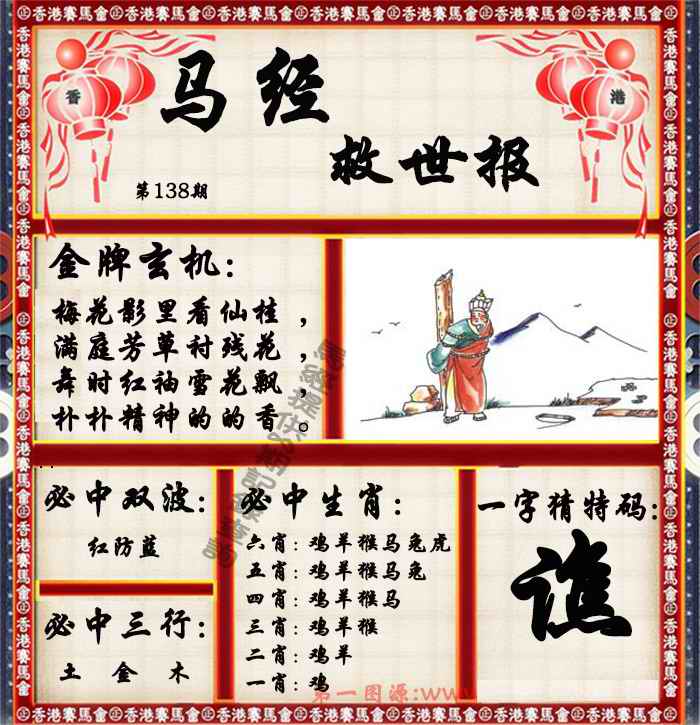 香港賽馬會
香 港
马经
救世报
第138期
金牌玄机：
梅花影里看仙桂，
满庭芳草衬残花，
舞时红袖雪花飘，
朴朴精神的的香。
必中双波：
红防蓝
必中三行：
土 金 木
必中生肖：
六肖：鸡羊猴马兔虎
五肖：鸡羊猴马兔
四肖：鸡羊猴马
三肖：鸡羊猴
二肖：鸡羊
一肖：鸡
一字猜特码：
谯
第一图源:www